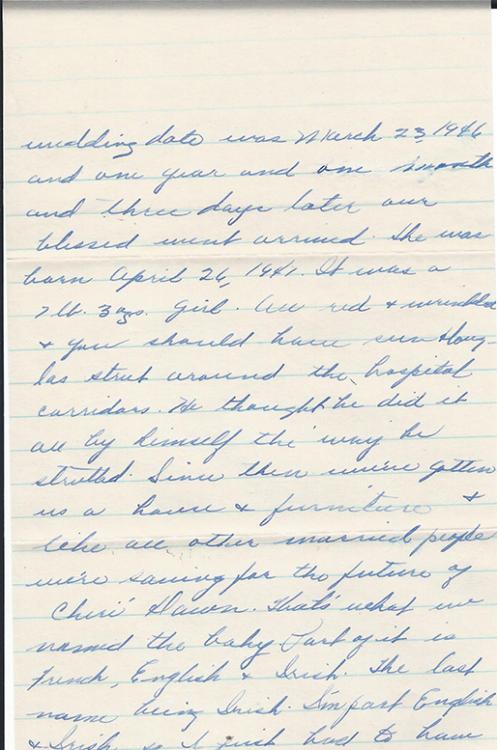 wedding date was March 23, 1946
and one year and one month
and three days later our
blessed went arrived. She was
born April 26, 1941. It was a
7 lb. 3 ozs. girl. All red + wrinkled
+ you should have seen Doug-
las strut around the hospital
corridors. He thought he did it
all by himself the way he
strutted. Since then we're gotten
us a house + furniture +
like all other married people
we're saving for the future of
Cheri Dawn. That's what we
named the baby Part of it is
French, English + Irish. The last
name being Irish. I'm part English
+ Irish so I just had to have